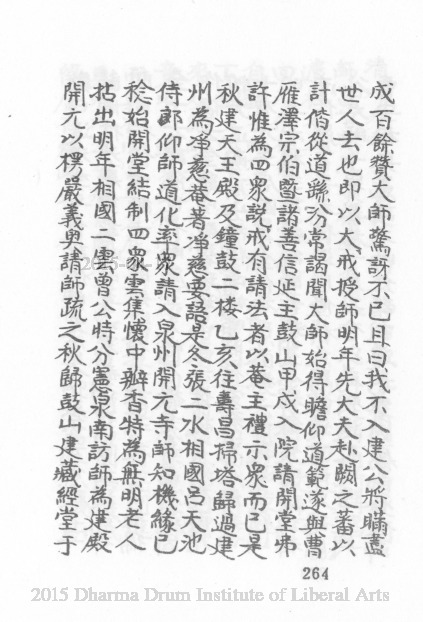 成百餘贊大師驚訝不已且曰我不入建公將瞞盡
世人去也即以大戒授師明年先大夫赴闕之蕃以
計偕從道縣分常謁聞大師始得瞻仰道範遂與曹
雁澤宗伯暨諸善信延主鼓山甲戍入院請開堂弗
許惟為四衆說戒有請法者以菴主禮示衆而已是
秋建天王殿及鐘鼓二樓乙亥往壽昌掃塔歸過建
州為淨慈菴著淨慈要語是冬張二水相國呂天池
侍郎仰師道化率衆請入泉州開元寺師知機緣已
稔始開堂結制四衆雲集懷中瓣香特為無明老人
拈出明年相國二雲曾公時分憲泉南訪師為建殿
開元以楞嚴義奧請師疏之秋歸鼓山建藏經堂于
264
2015 Dharma Drum Institute of Liberal Arts